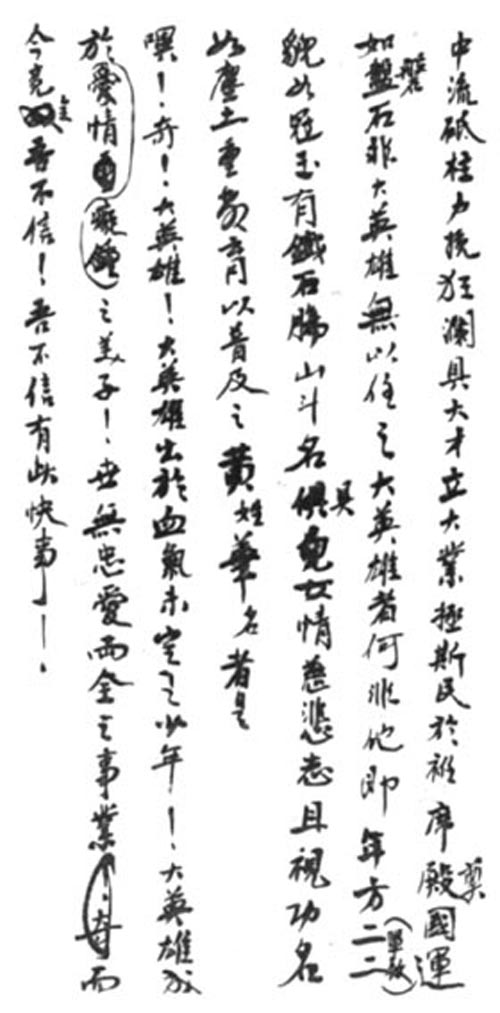 中流砥柱力挽狂瀾具大才立大業拯斯民於袵席殿奠國運
如盤磐石非大英雄無以任之大英雄者何非他即年方二二(單數)
貌如冠玉有鐵石腸山斗名俱具兒女情慈悲志且視功名
如塵土重教育以普及之黃姓華名者是
噗!奇!大英雄!大英雄出於血氣未定之少年!大英雄成
於愛情癡鍾之美子!世無忠愛兩全之事業!奇而
今竟吾不信!吾不信有此快事!